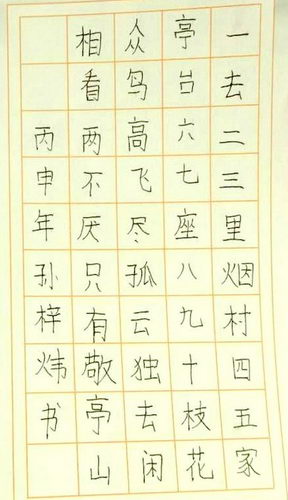 一去二三里烟村四五家
亭台六七座八九十枝花
众鸟高飞尽孤云独去闲
相看两不厌只有敬亭山
丙申年孙梓炜书